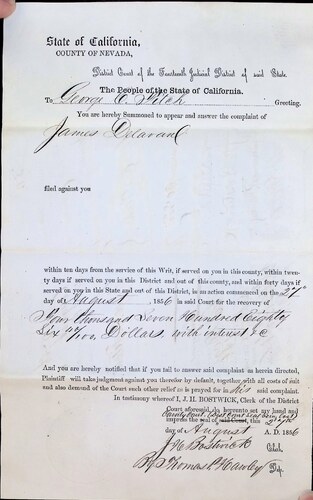 State of California,
COUNTY OF NEVADA,
District Court of the Fourteenth Judicial District of said State.
The People of the State of California.
To George O. Fitch Greeting.
You are hereby Summoned to appear and answer the complaint of
James Delavan
filed against you
within ten days from the service of this Writ, if served on you in this county, within twen-
ty days if served on you in this District and out of this county, and within forty days if
served on you in this State and out of this District, in an action commenced on the 27th
day of August , 1856 in said Court for the recovery of
Four thousand Seven Hundred Eighty
Six /100 Dollars with interest &C
And you are hereby notified that if you fail to answer said complaint as herein directed,
Plaintiff will take judgment against you therefor by default, together with all costs of suit
and also demand of the Court such other relief as is prayed for in his said complaint.
In testimony whereof I, J. H. BOSTWICK, Clerk of the District
Court aforesaid, do hereunto set my hand and
impress the seal of said Court, this 27th
day of August A. D. 1856
J H Bostwick Clerk,
By Thomas P Hawley Dp.